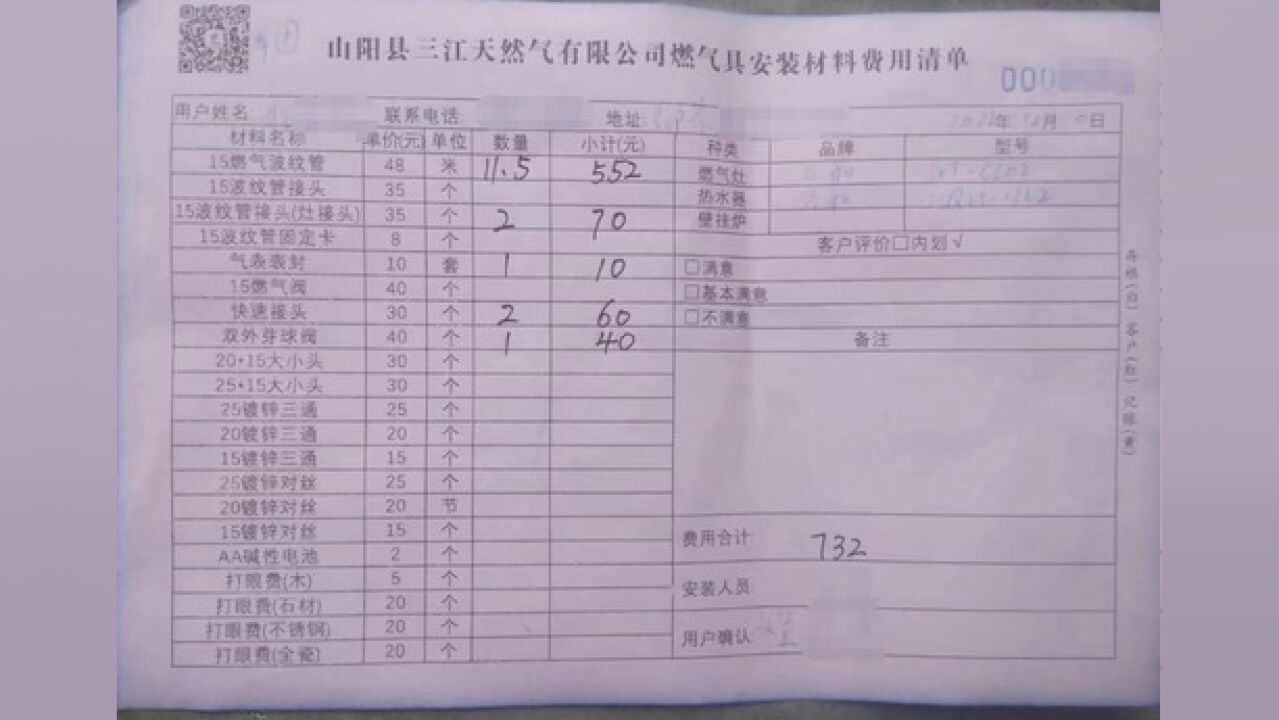 山阳县三江天然气有限公司燃气具安装材料费用清单
000
用户姓名 联系电话 地址 年 月 日
材料名称 单价(元) 单位 数量 小计(元) 种类 品牌 型号
15燃气波纹管 48 米 11.5 552 燃气灶
15波纹管接头 35 个 热水器
15波纹管接头(灶接头) 35 个 2 70 壁挂炉
15波纹管固定卡 8 个 客户评价□内划√
气表表封 10 套 1 10 □满意
15燃气阀 40 个 □基本满意
快速接头 30 个 2 60 □不满意
双外牙球阀 40 个 1 40 备注
20*15大小头 30 个
25*15大小头 30 个
25镀锌三通 25 个
20镀锌三通 20 个
15镀锌三通 15 个
25镀锌对丝 25 个
20镀锌对丝 20 节
15镀锌对丝 15 个
费用合计 732
AA碱性电池 2 个
打眼费(木) 5 个 安装人员
打眼费(石材) 20 个
打眼费(不锈钢) 20 个 用户确认
打眼费(全瓷) 20 个
客户(红) 记账(黄)